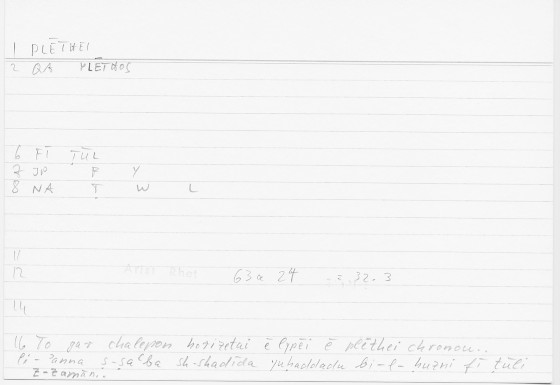 1 PLĒTHEI
2 QA PLĒTHOS
6 FĪ ṬŪL
7 JP P Y
8 NA Ṭ W L
11
12 Arist Rhet 63a 24 = 32.3
14
16 To gar chalepon horizetai ē lypēi ē plēthei chronou..
li-ʾanna ṣ-ṣaʿba sh-shadīda yuḥaddadu bi-l-ḥuzni fī ṭūli
z-zamān..